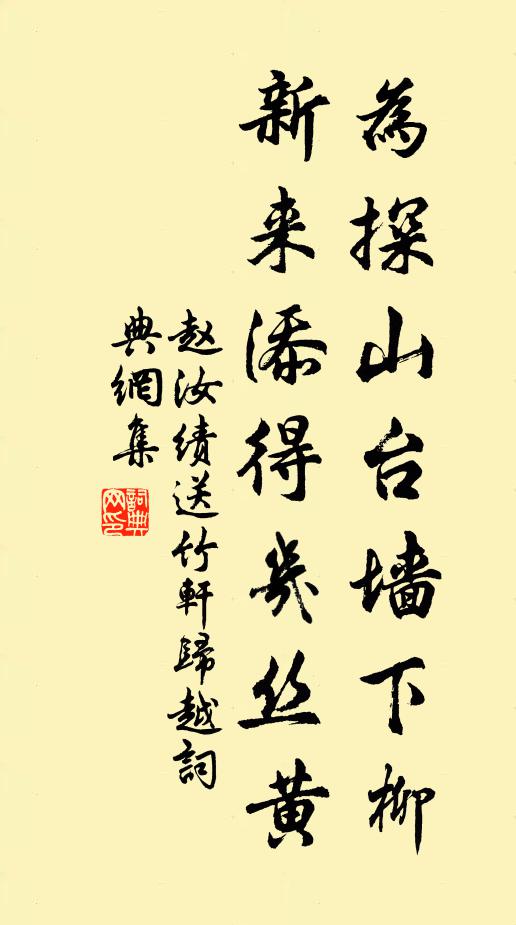 為探山台墙下柳
新来添得幾丝黄
赵汝绩送竹軒歸越詞
典網集
詞典网印